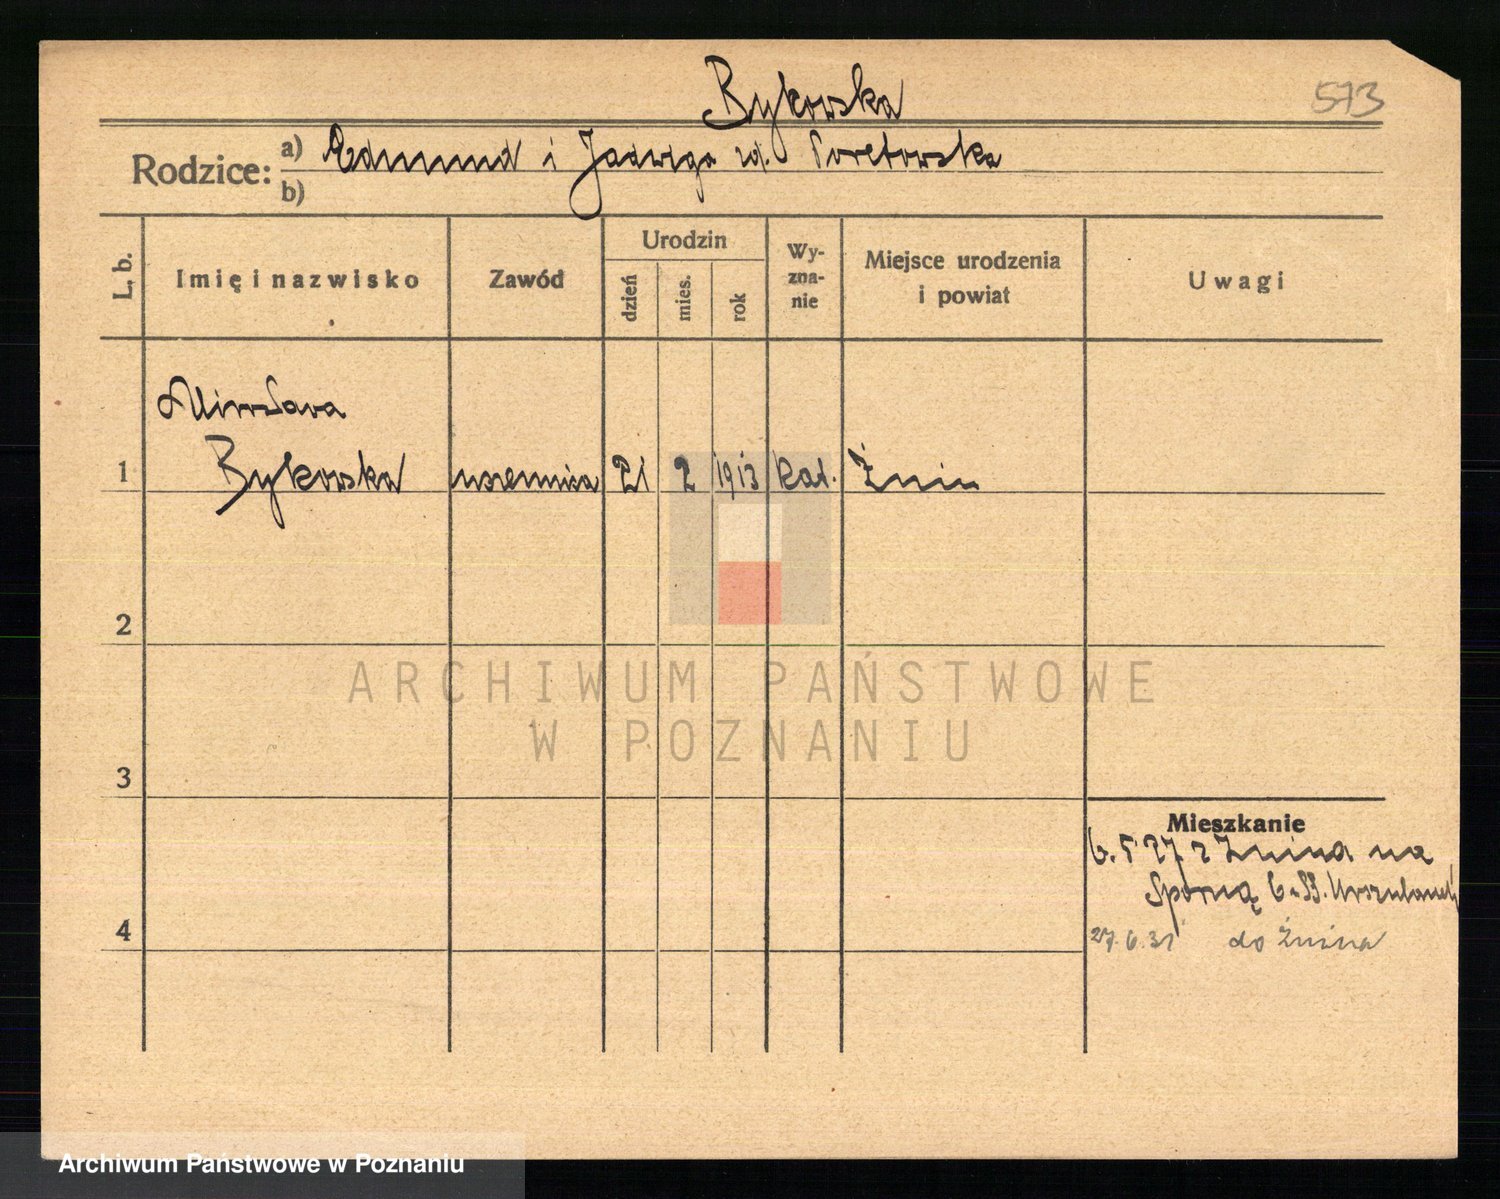 Bykowska
573
Rodzice: a) Edmund i Jadwiga zd.
b)
L. b.
Imię i nazwisko
Zawód
Urodzin
dzień
mies.
rok
Wy-
zna-
nie
Miejsce urodzenia
i powiat
Uwagi
Mirosława
1 Bykowska uczennica 21 2 1913 kat. Żnin
2
3
4
Mieszkanie
6. 5 27 z Żnina na
6 SS. Urszulanek
27. 6. 31 do Żnina
ARCHIWUM PAŃSTWOWE
W POZNANIU
Archiwum Państwowe w Poznaniu